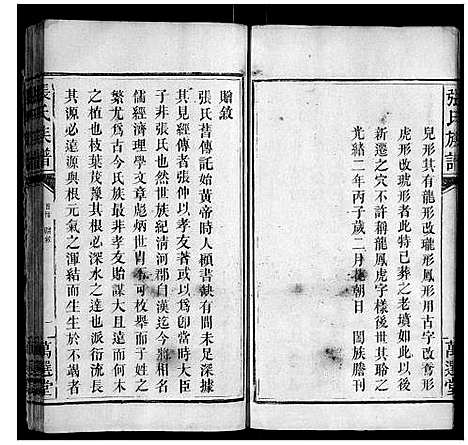 張氏族譜
兒形其有龍形改瓏形鳳形用古字改奪形
虎形改琥形者此特已葬之老墳如此以後
新遷之穴不許稱龍鳳虎字樣後世其聆之
光緒二年丙子歲二月 朝日 闔族謄刊
萬選堂
贈敘
張氏昔傳託始黃帝時人楨書缺有間不足深據
其見經傳者張仲以孝友著或以為卽當時大臣
子非張氏也然世族紀清河郡自漢迄今將相名
儒經濟理學文章彪炳世冑有枚舉而于姓之
繁尤爲古今氏族最非孝友貽謀大且遠而何木
之植也枝葉茂豫其根必深水之達也派衍流長
其源必遠源與根元氣之渾結而生生於不竭者
張氏族譜
萬選堂